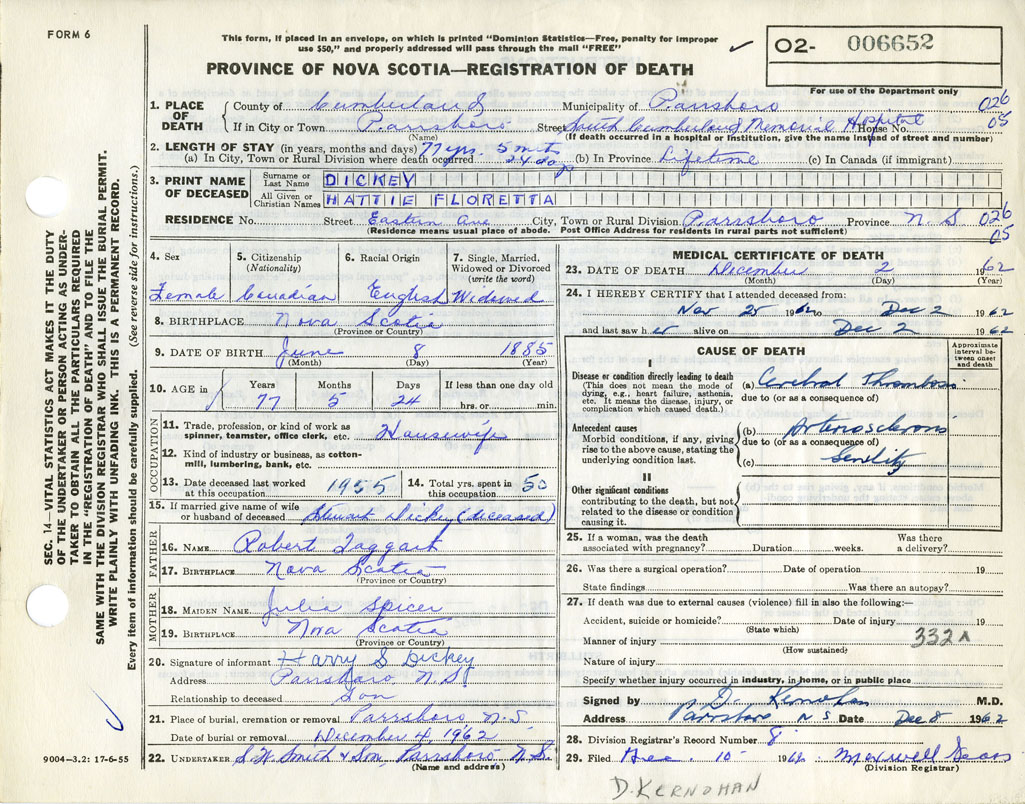 FORM 6
This form, if placed in an envelope, on which is printed "Dominion Statistics—Free, penalty for improper
use $50," and properly addressed will pass through the mail "FREE"
02- 006652
For use of the Department only
PROVINCE OF NOVA SCOTIA—REGISTRATION OF DEATH
SEC. 14—VITAL STATISTICS ACT MAKES IT THE DUTY
OF THE UNDERTAKER OR PERSON ACTING AS UNDER-
TAKER TO OBTAIN ALL THE PARTICULARS REQUIRED
IN THE "REGISTRATION OF DEATH" AND TO FILE THE
SAME WITH THE DIVISION REGISTRAR WHO SHALL ISSUE THE BURIAL PERMIT.
WRITE PLAINLY WITH UNFADING INK. THIS IS A PERMANENT RECORD.
Every item of information should be carefully supplied. (See reverse side for instructions.)
1. PLACE OF DEATH
County of Cumberland Municipality of Parrsboro 026
If in City or Town Parrsboro Street South Cumberland Memorial Hospital House No. 05
(Name) (If death occurred in a hospital or institution, give the name instead of street and number)
2. LENGTH OF STAY (in years, months and days) 77 yrs. 5 mths
(a) In City, Town or Rural Division where death occurred 24 da (b) In Province Lifetime (c) In Canada (if immigrant)
3. PRINT NAME OF DECEASED
Surname or Last Name DICKEY
All Given or Christian Names HATTIE FLORETTA
RESIDENCE No. Street Eastern Ave City, Town or Rural Division Parrsboro Province N.S 026
(Residence means usual place of abode. Post Office Address for residents in rural parts not sufficient) 05
4. Sex Female
5. Citizenship (Nationality) Canadian
6. Racial Origin English
7. Single, Married, Widowed or Divorced (write the word) Widowed
8. BIRTHPLACE Nova Scotia
(Province or Country)
9. DATE OF BIRTH June 8 1885
(Month) (Day) (Year)
10. AGE in Years Months Days If less than one day old
77 5 24 hrs. or min.
OCCUPATION
11. Trade, profession, or kind of work as
spinner, teamster, office clerk, etc. Housewife
12. Kind of industry or business, as cotton-
mill, lumbering, bank, etc.
13. Date deceased last worked
at this occupation 1955
14. Total yrs. spent in
this occupation 50
15. If married give name of wife
or husband of deceased Stewart Dickey (deceased)
FATHER
16. NAME Robert Taggart
17. BIRTHPLACE Nova Scotia
(Province or Country)
MOTHER
18. MAIDEN NAME Julia Spicer
19. BIRTHPLACE Nova Scotia
(Province or Country)
20. Signature of informant Harry S Dickey
Address Parrsboro N.S
Relationship to deceased Son
21. Place of burial, cremation or removal Parrsboro, N.S
Date of burial or removal December 4 1962
22. UNDERTAKER S.W. Smith & Son, Parrsboro N.S.
(Name and address)
9004—3.2: 17-6-55
MEDICAL CERTIFICATE OF DEATH
23. DATE OF DEATH December 2 1962
(Month) (Day) (Year)
24. I HEREBY CERTIFY that I attended deceased from:
Nov 25 1962 to Dec 2 1962
and last saw her alive on Dec 2 1962
CAUSE OF DEATH
Approximate interval between onset and death
I
Disease or condition directly leading to death
(This does not mean the mode of
dying, e.g., heart failure, asthenia,
etc. It means the disease, injury, or
complication which caused death.)
(a) Cerebral Thrombosis
due to (or as a consequence of)
Antecedent causes
Morbid conditions, if any, giving
rise to the above cause, stating the
underlying condition last.
(b) Arteriosclerosis
due to (or as a consequence of)
(c) Senility
II
Other significant conditions
contributing to the death, but not
related to the disease or condition
causing it.
25. If a woman, was the death
associated with pregnancy? Duration weeks. Was there a delivery?
26. Was there a surgical operation? Date of operation 19
State findings Was there an autopsy?
27. If death was due to external causes (violence) fill in also the following:—
Accident, suicide or homicide? Date of injury 19
(State which)
Manner of injury 332A
(How sustained)
Nature of injury
Specify whether injury occurred in industry, in home, or in public place
Signed by D. Kernohan M.D.
Address Parrsboro N S Date Dec 8 1962
28. Division Registrar's Record Number 8
29. Filed Dec. 10 1962 Maxwell
(Division Registrar)
D. KERNOHAN